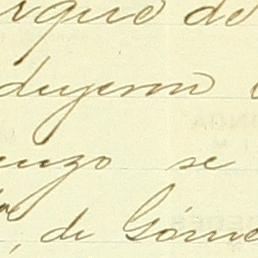 rque de
dujeron
nzo se
, de Góme